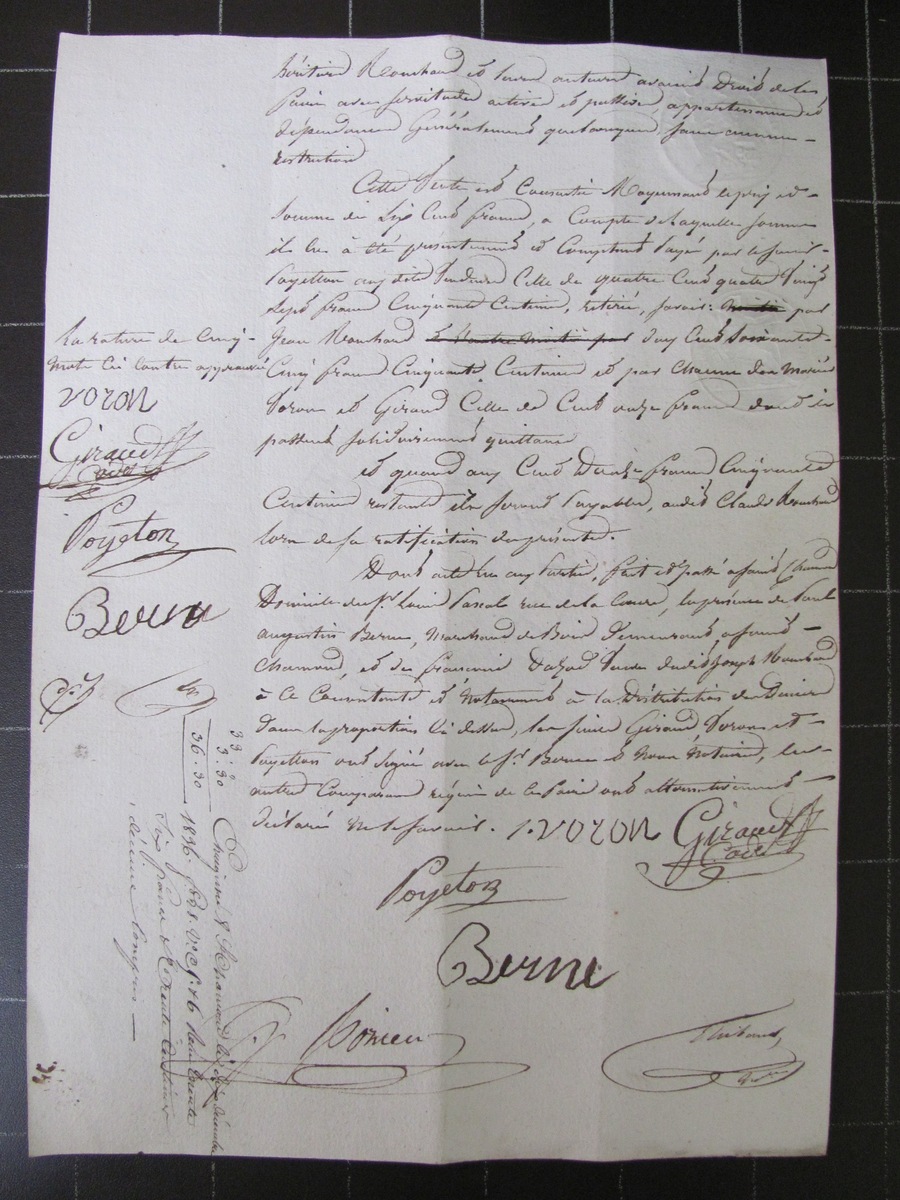 héritiers Rouchand et leurs auteurs avaient Droit de les
faire avec servitudes actives et passives appartenances et
dépendances Généralement quelconques, sans aucune
restriction
Cette Vente est Consentie Moyennant le prix et
Somme de Six Cents francs, a Compte de laquelle somme
il leur à été présentement et Comptant payé par le sieur
Poyetton auxdits Vendeurs Celle de quatre Cent quatre Vingt
Sept francs Cinquante Centimes, retirée, savoir: moitié par
Jean Rouchand et l'autre moitié par deux Cent soixante
Cinq francs Cinquante Centimes et par Chacun des Mariés
Voron et Giraud Celle de Cent onze francs dont ils
passent solidairement quittance
et quand aux Cent Douze francs Cinquante
Centimes restants ils seront payables, audit Claude Rouchand
lors de sa ratification du présente.
Dont acte lu aux parties, fait et passé à Saint Chamond
Domicile du Sr. Louis Pascal rue de la , en présence de Paul
augustin Berne, Marchand de Bois Demeurant a Saint
Chamond, et de francoise Veuve dudit Joseph Rouchand
à Ce Consentante et Notamment à la Distribution des Deniers
dans la proportion Ci dessus, les sieurs Giraud Voron et
Poyetton ont signé avec le Sr. Berne et Nous Notaires, les
autres Comparants requis de le faire ont alternativement
déclaré ne le savoir. J. VORON Giraud
Cadet
Poyeton
Berne
La rature de Cinq
mots Ci Contre approuvée
VORON
Giraud
Cadet
Poyeton
Berne
33: "
3: 30
36. 30
Enregistré à St Chamond le décembre
1836. f. 68. V. C. 6. Reçu trente
Six francs et trente Centimes
décime Compris
Thibaud